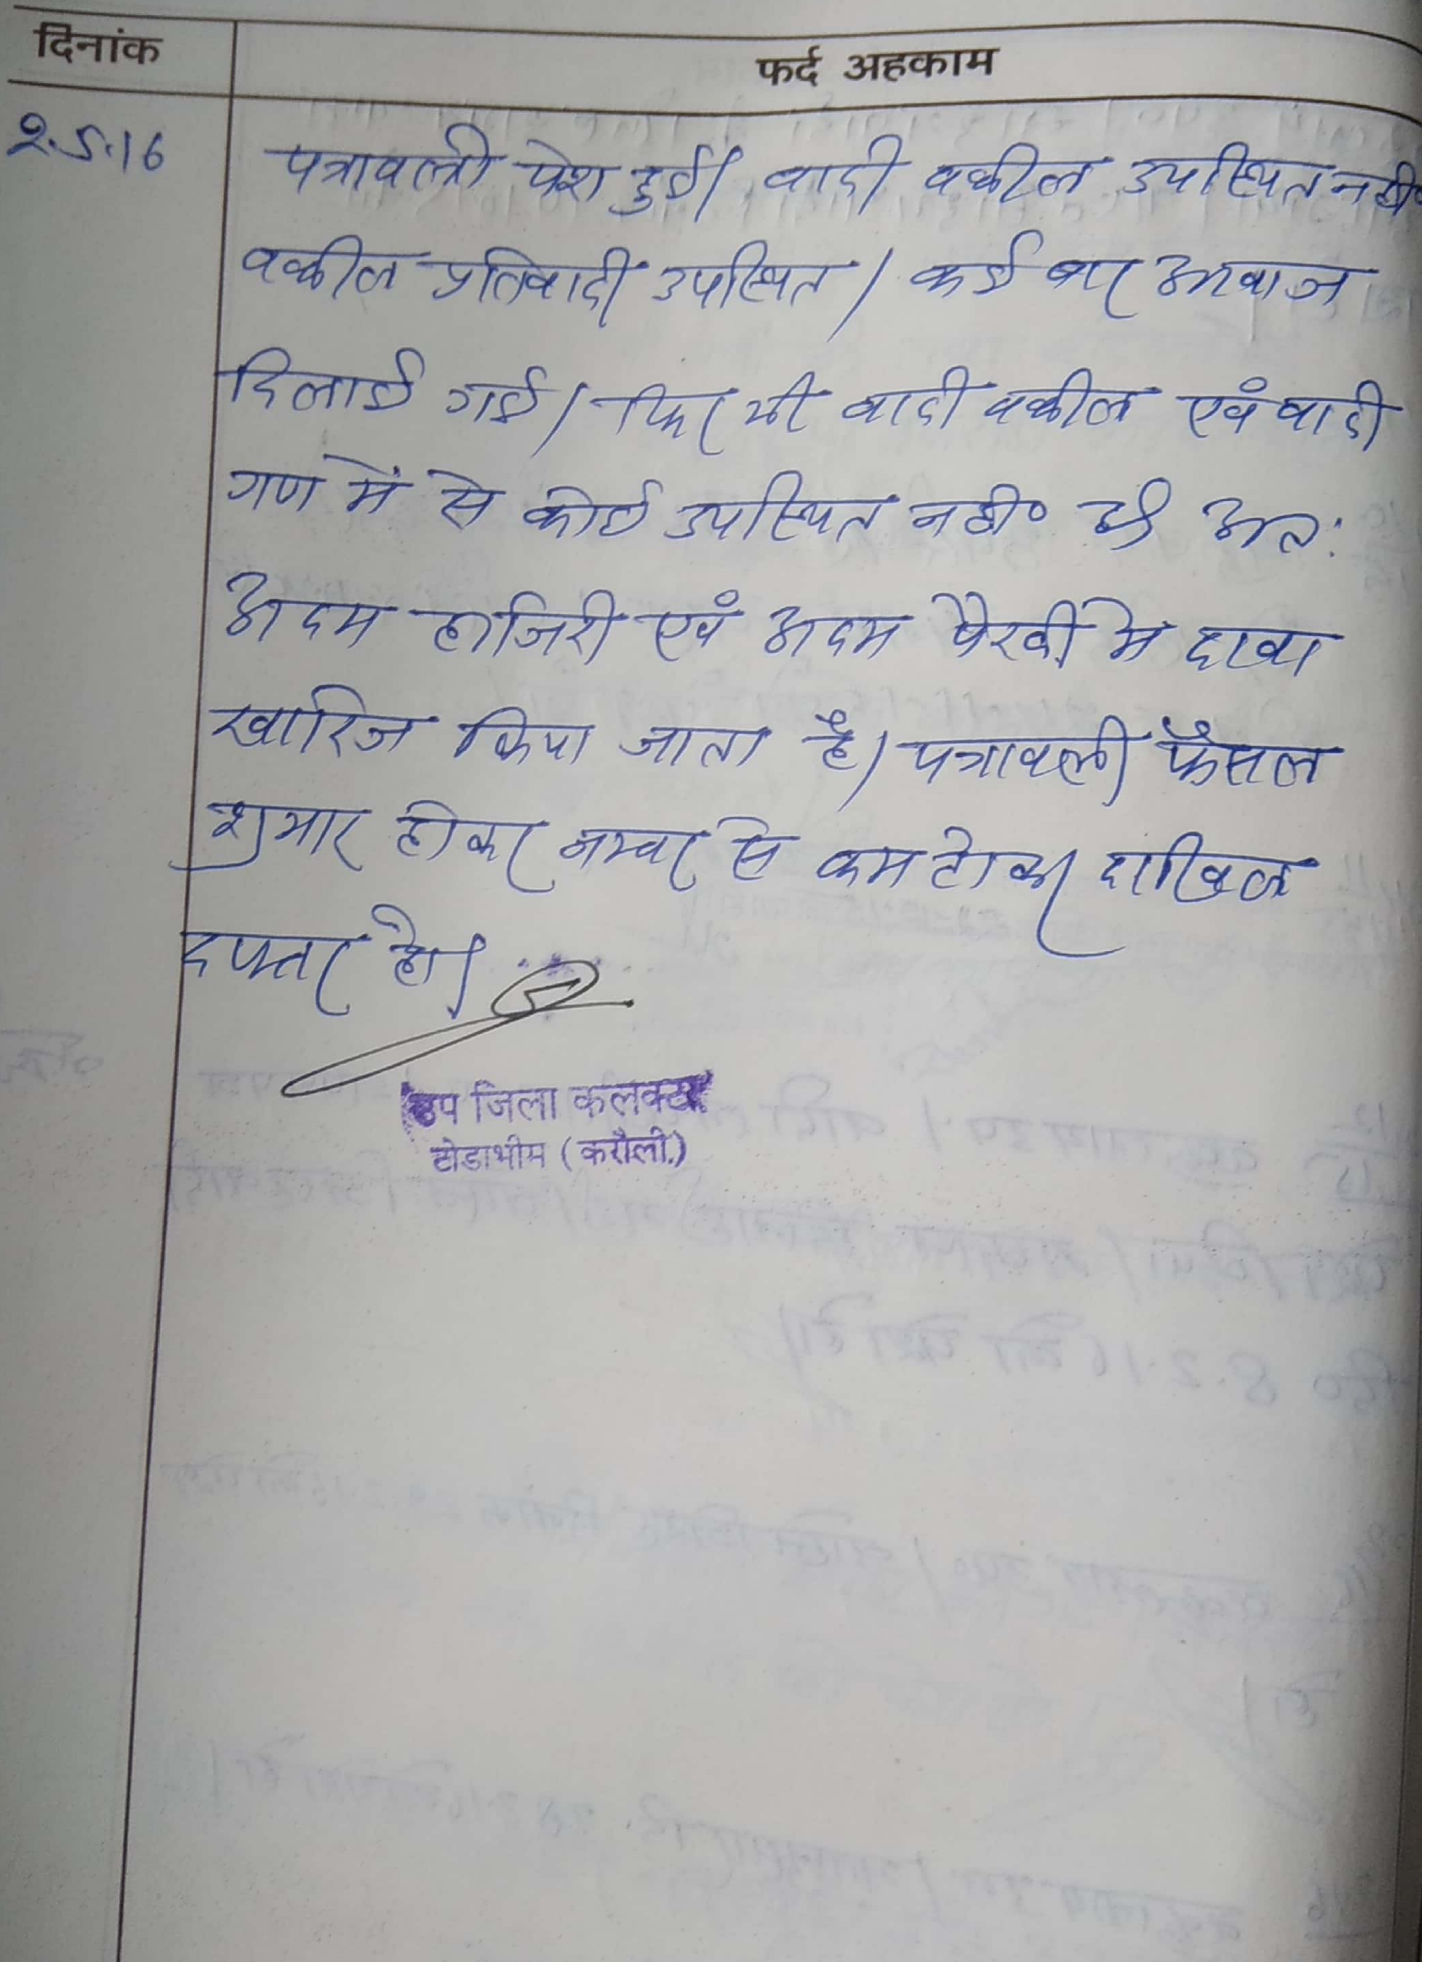 दिनांक
फर्द अहकाम
2.5.16
पत्रावली पेश हुई। वादी वकील उपस्थित नहीं
वकील प्रतिवादी उपस्थित। कई बार आवाज
दिलाई गई। फिर भी वादी वकील एवं वादी
गण में से कोई उपस्थित नहीं अतः
अदम हाजिरी एवं अदम पैरवी मे दावा
खारिज किया जाता है। पत्रावली फैसल
शुमार होकर नम्बर से कम होकर दाखिल
दफ्तर हो।
उप जिला कलक्टर
टोडाभीम (करौली)